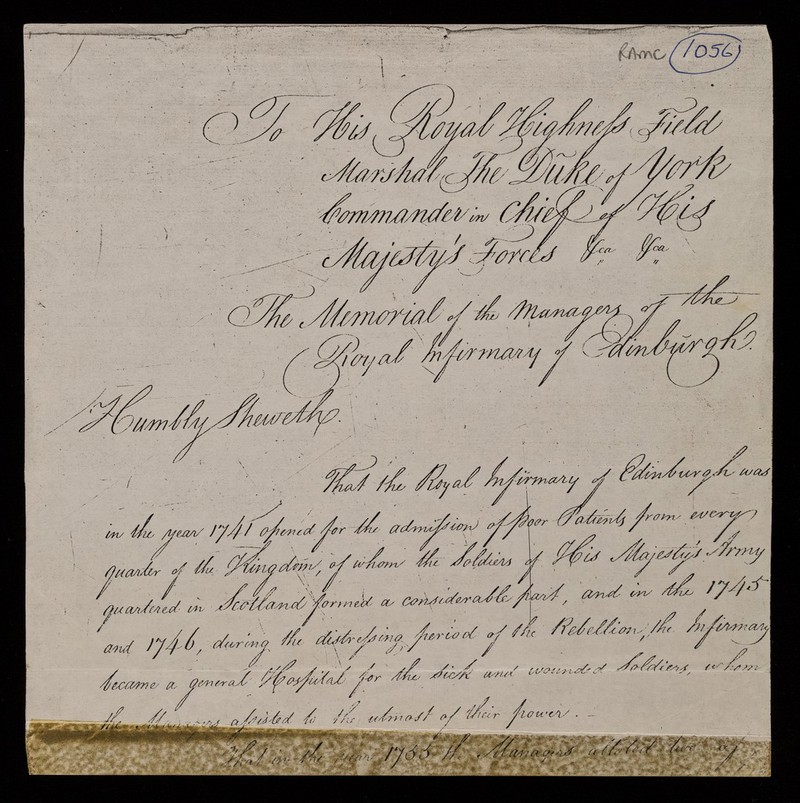 RAMC 1056
To His Royal Highneſs Field
Marshal The Duke of York
Commander in Chief of His
Majesty's Forces &ca &ca
The Memorial of the Managers of the
Royal Infirmary of Edinburgh.
Humbly Sheweth.
That the Royal Infirmary of Edinburgh was
in the year 1741 opened for the admiſsion of poor Patients from every
quarter of the Kingdom, of whom the Soldiers of His Majesty's Army
quartered in Scotland formed a considerable part, and in the 1745
and 1746, during the distreſsing period of the Rebellion, the Infirmary
became a general Hospital for the sick and wounded Soldiers, whom
the Managers aſsisted to the utmost of their power. –
That in the year 1755 the Managers allotted two